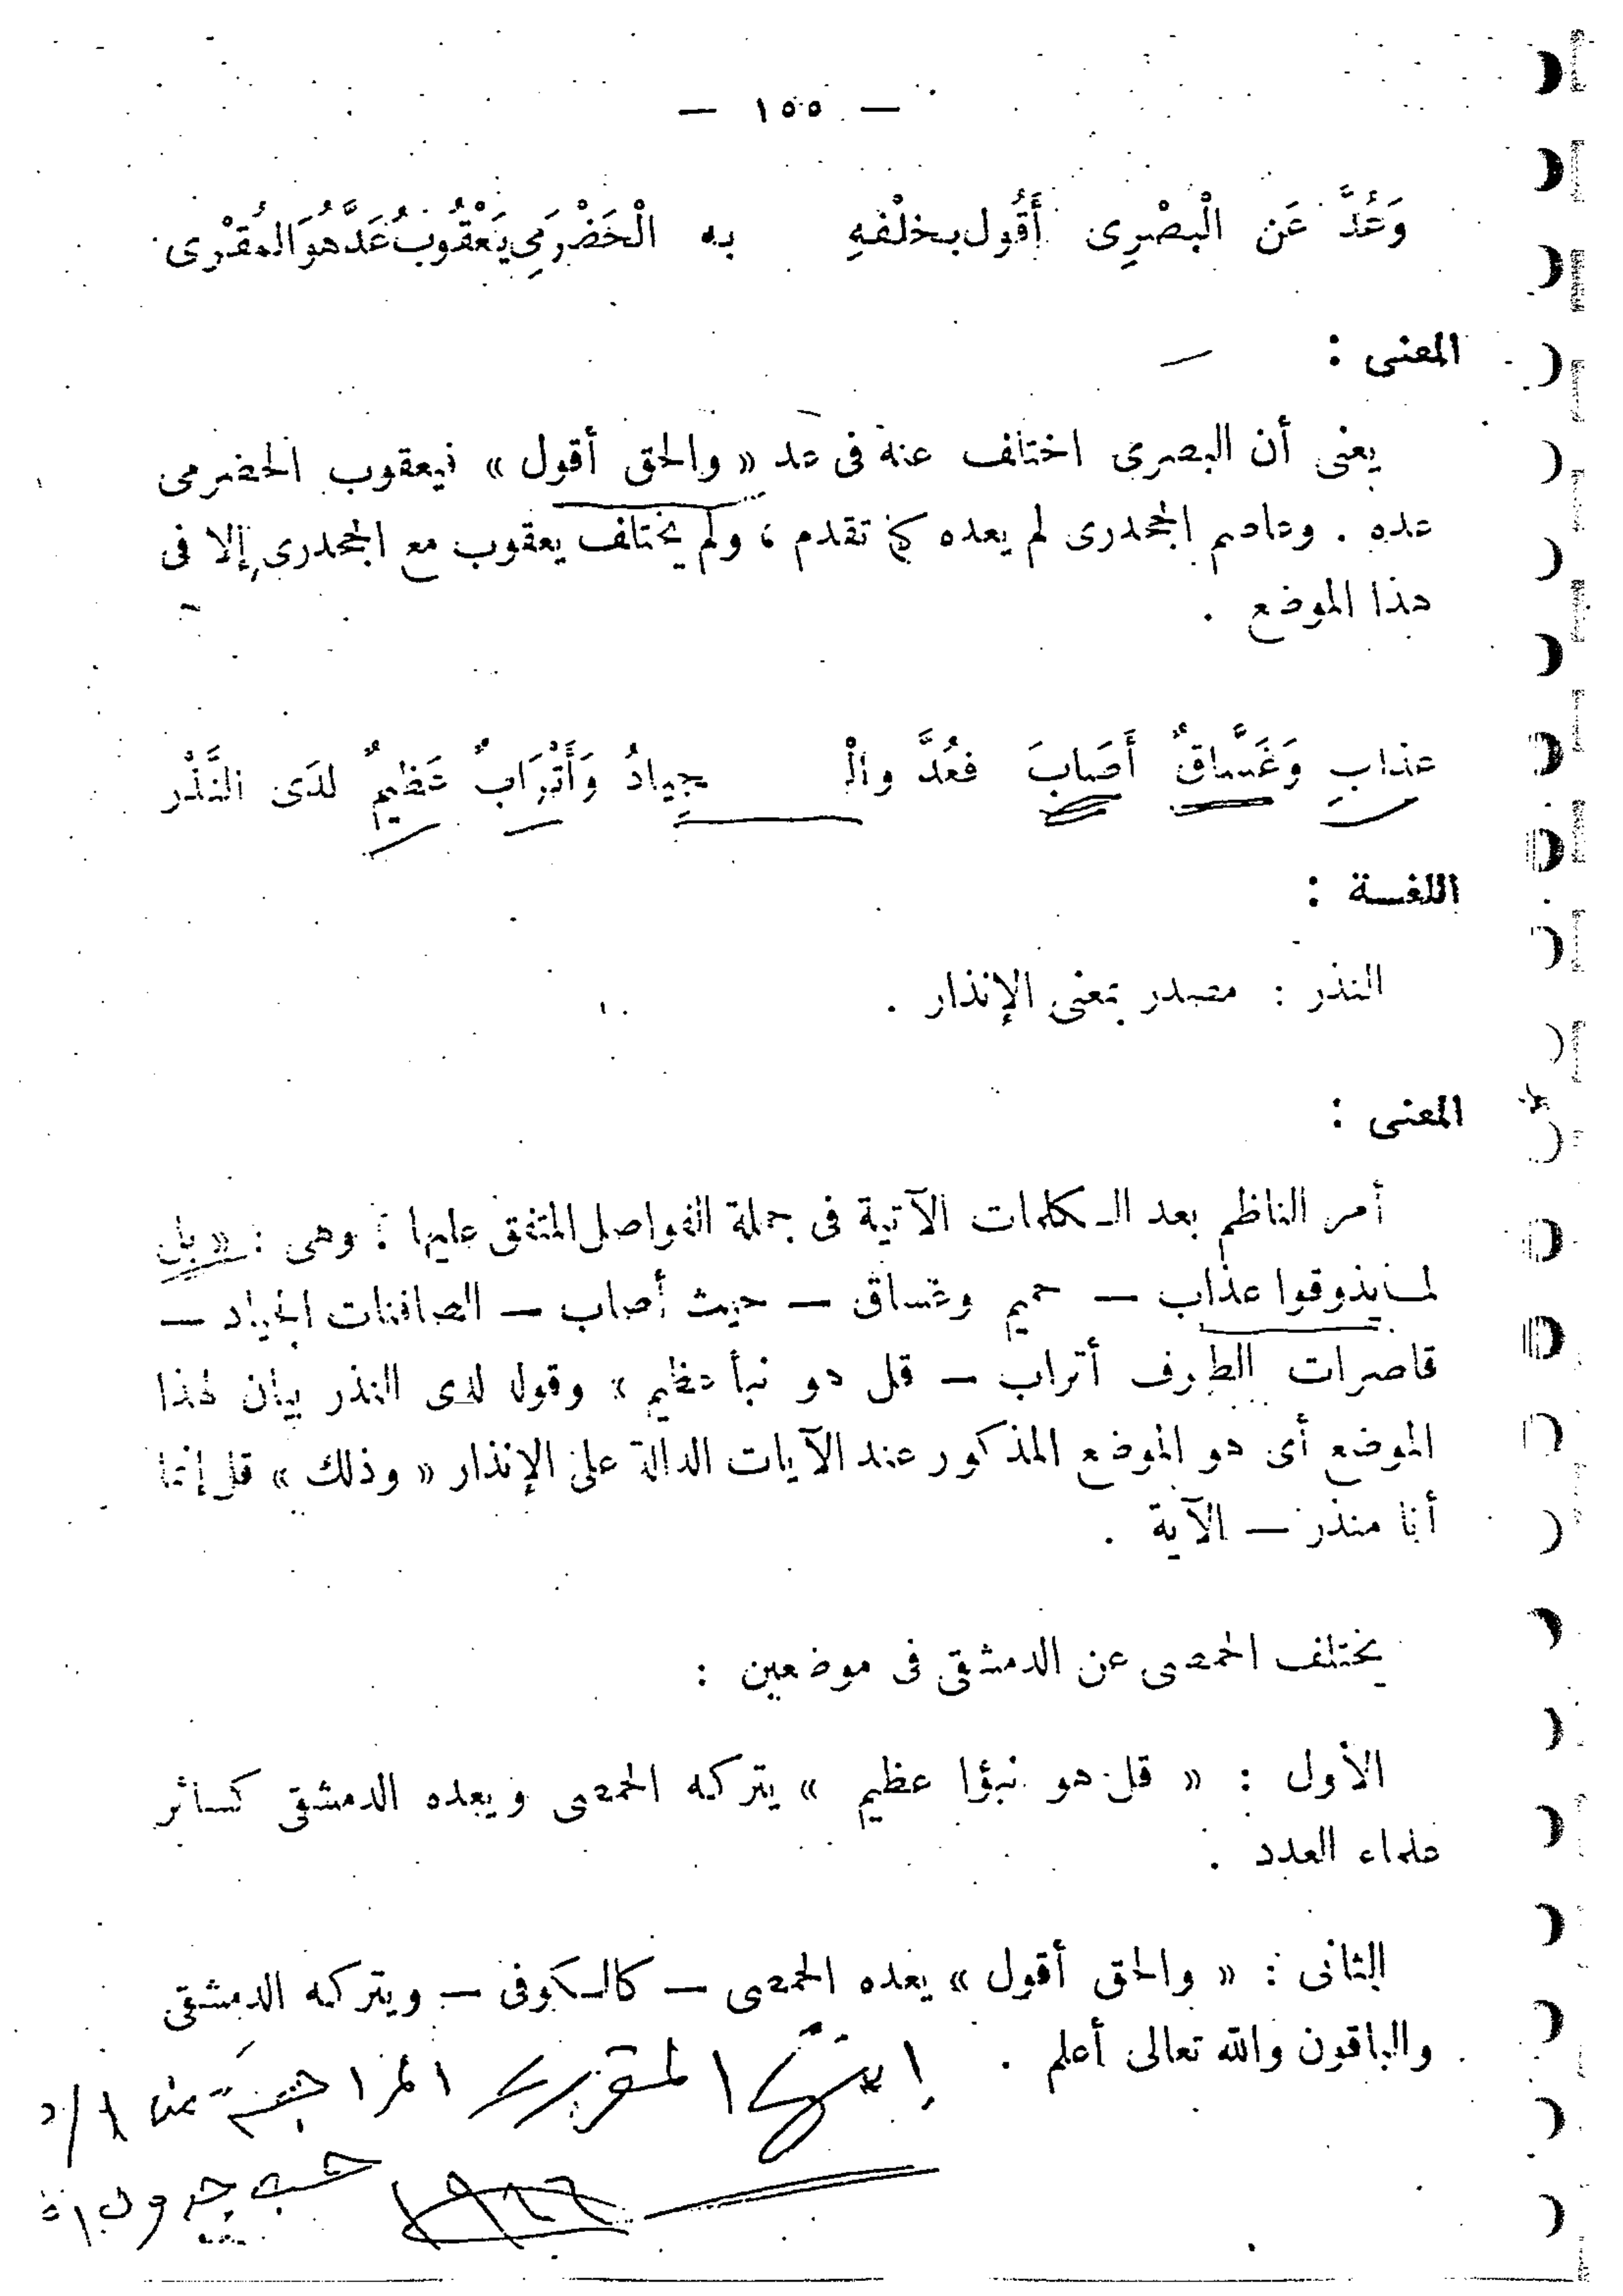 — ١٥٥ —
وَعُدَّ عَن الْبصْرِى أَقُول بخلْفهِ به الْحَضْرَمِى يَعْقُوبُ عَدَّ هُوَ المُقرْى
المعنى :
يعنى أن البصرى اختلف عنه فى عد « والحق أقول » فيعقوب الحضرمى
عده . وعاصم الجحدرى لم يعده كما تقدم ، ولم يختلف يعقوب مع الجحدرى إلا فى
هذا الموضع .
عذابِ وَغَسَّاقٌ أَصَابَ فعُدَّ والْ جِيادُ وَأَتْرَابٌ عَظيمٌ لدَى النَّذْر
اللغـــة :
النذر : مصدر بمعنى الإنذار .
المعنى :
أمر الناظم بعد الـكلمات الآتية فى جملة الفواصل المتفق عليها : وهى : « بل
لمـا يذوقوا عذاب — حميم وغساق — حيث أصاب — الصافنات الجياد —
قاصرات الطرف أتراب — قل هو نبأ عظيم » وقوله لدى النذر بيان لهذا
الموضع أى هو الموضع المذكور عند الآيات الدالة على الإنذار « وذلك » قل إنما
أنا منذر — الآية .
يختلف الحمصى عن الدمشقى فى موضعين :
الأول : « قل هو نبؤا عظيم » يتركه الحمصى ويعده الدمشقى كسائر
علماء العدد .
الثانى : « والحق أقول » يعده الحمصى — كالـكوفى — ويتركه الدمشقى
والباقون والله تعالى أعلم .
المقرر